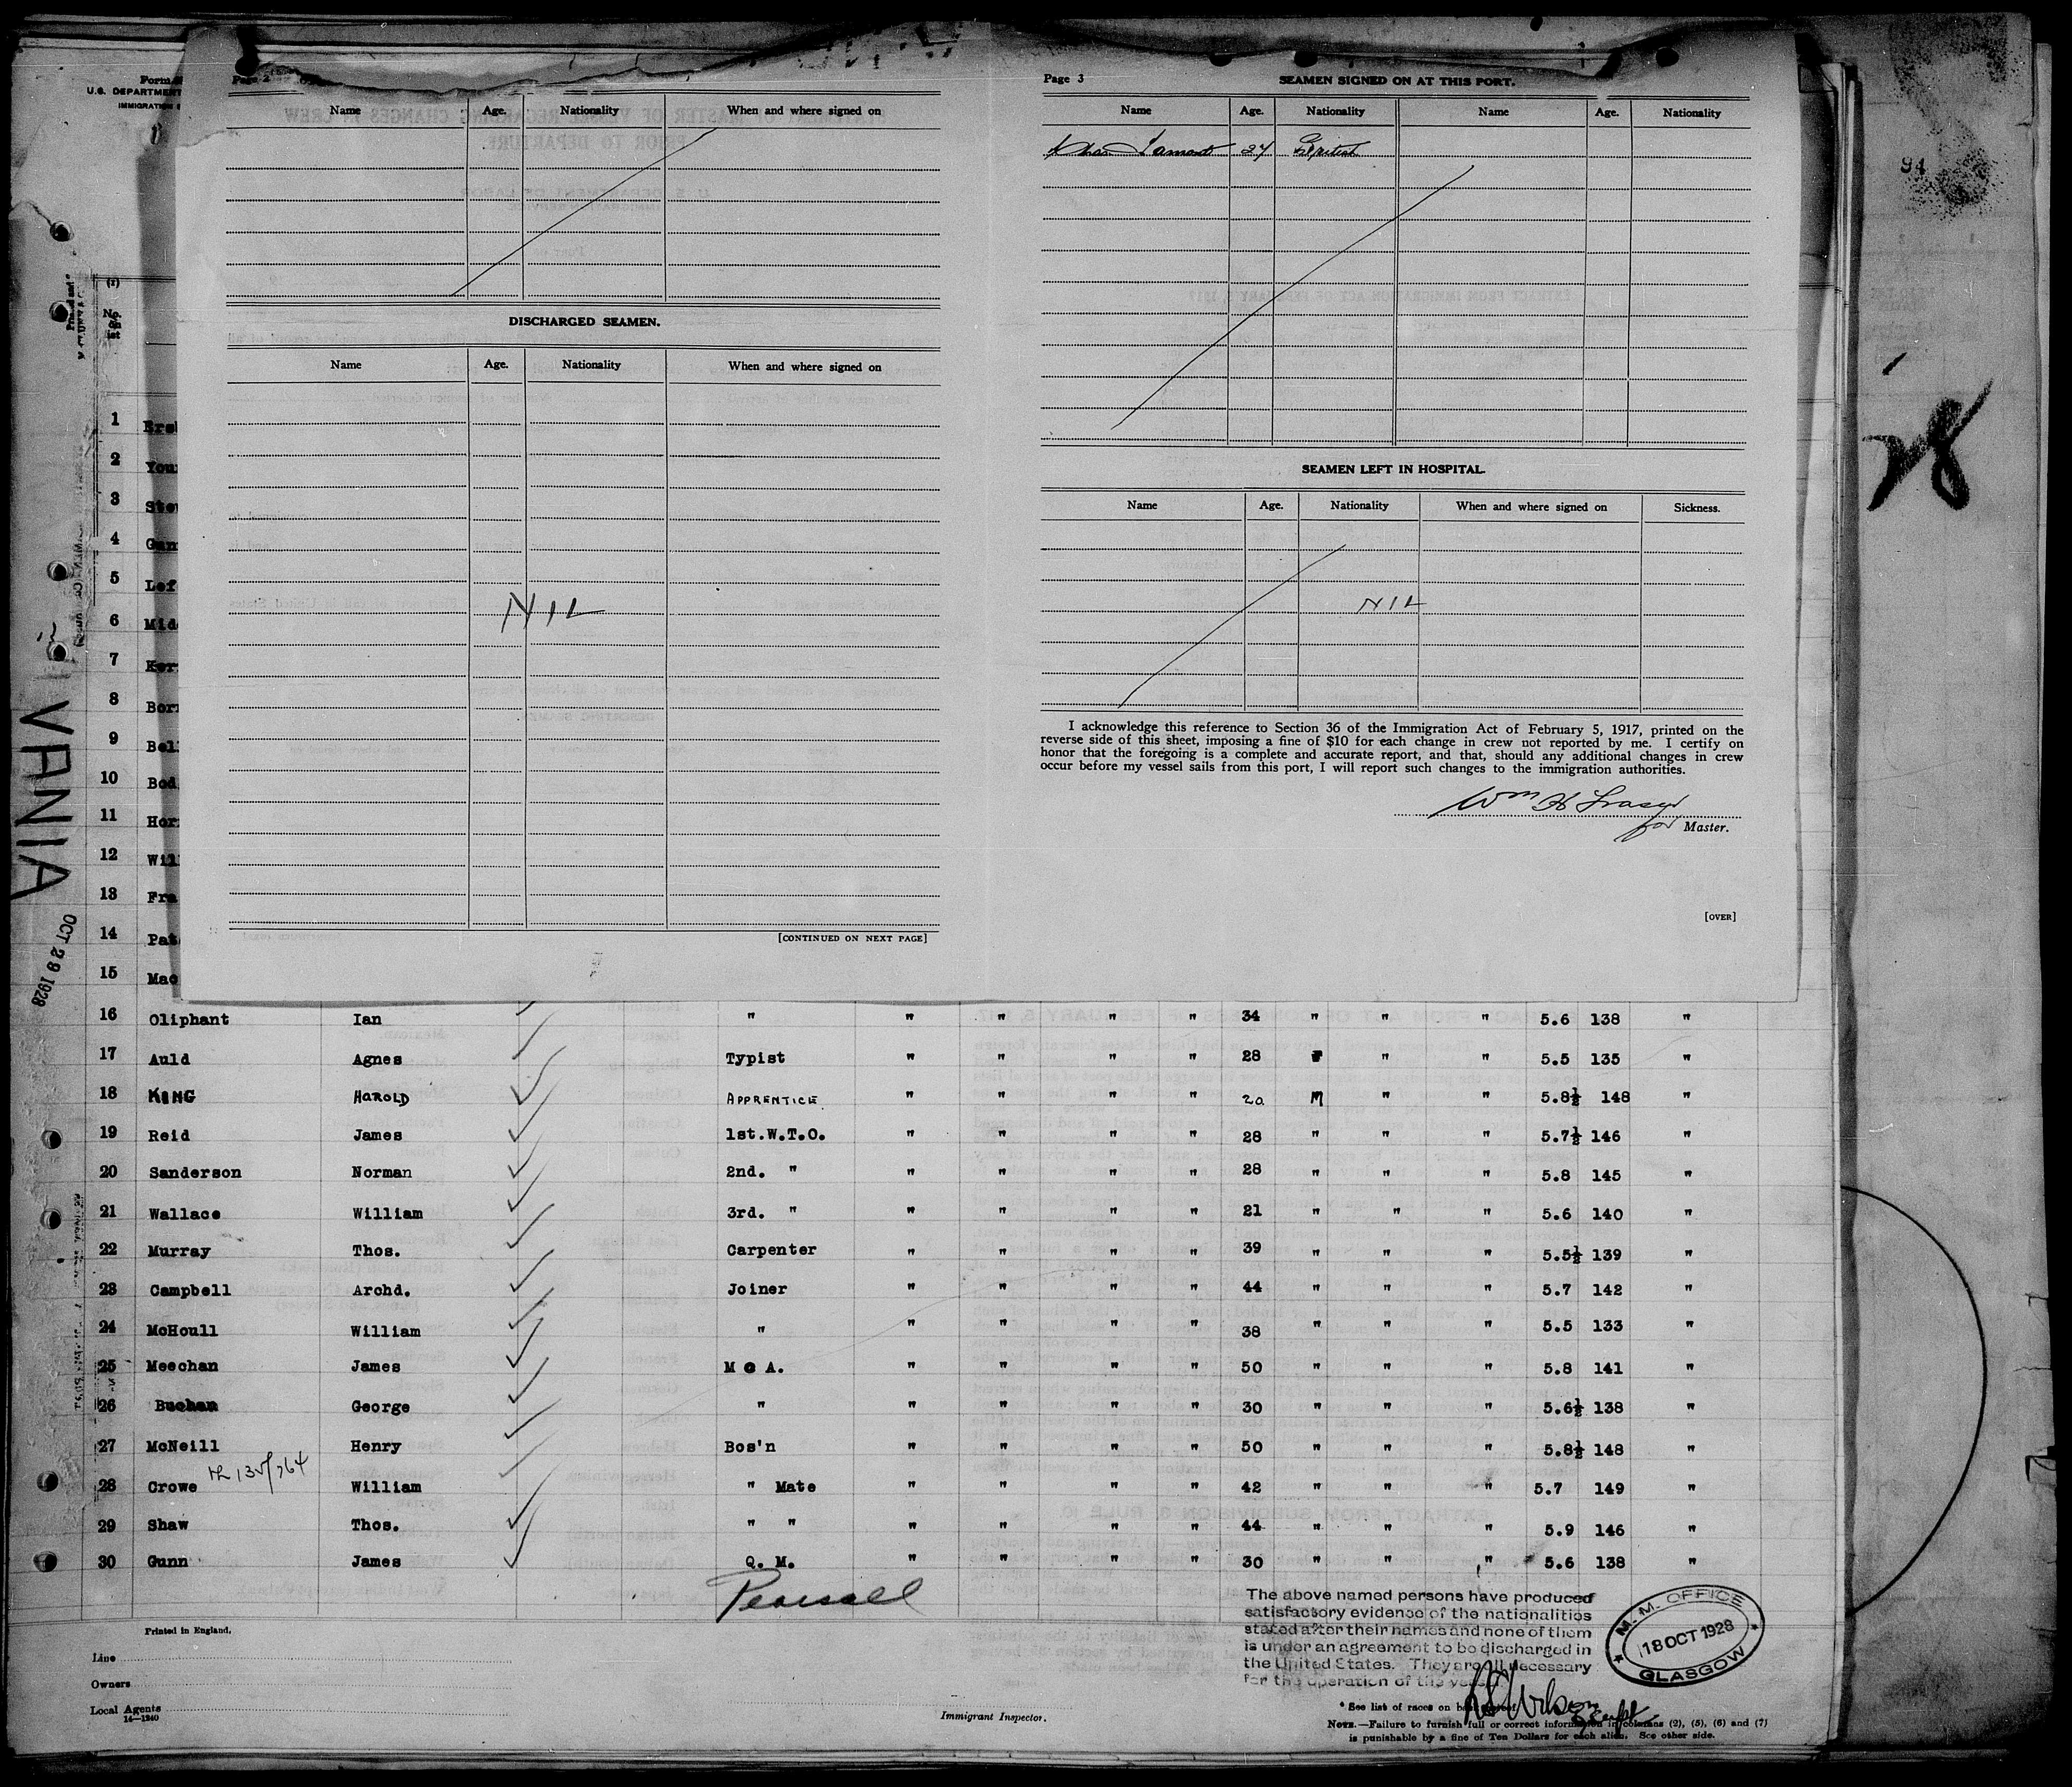 Form
U.S. DEPARTMENT
IMMIGRATION
Page 2
Name Age. Nationality When and where signed on
DISCHARGED SEAMEN.
Name Age. Nationality When and where signed on
NIL
[CONTINUED ON NEXT PAGE]
Page 3
SEAMEN SIGNED ON AT THIS PORT.
Name Age. Nationality Name Age. Nationality
Lamont 24 British
SEAMEN LEFT IN HOSPITAL.
Name Age. Nationality When and where signed on Sickness.
NIL
I acknowledge this reference to Section 36 of the Immigration Act of February 5, 1917, printed on the
reverse side of this sheet, imposing a fine of $10 for each change in crew not reported by me. I certify on
honor that the foregoing is a complete and accurate report, and that, should any additional changes in crew
occur before my vessel sails from this port, I will report such changes to the immigration authorities.
Wm H Fraser
for Master.
[OVER]
94
28
VANIA
OCT 29 1928
(1)
1
2 You
3 Ste
4
5 Lef
6 Mid
7 Ker
8 Bor
9 Bel
10 Bod
11 Hor
12 Wil
13 Fra
14 Pat
15 Mac
16 Oliphant Ian " " " " " 34 " " " 5.6 138 "
17 Auld Agnes Typist " " " " 28 F " " 5.5 135 "
18 KING HAROLD APPRENTICE " " " " 20 M " " 5.8½ 148 "
19 Reid James 1st.W.T.O. " " " " 28 " " " 5.7½ 146 "
20 Sanderson Norman 2nd. " " " " " 28 " " " 5.8 145 "
21 Wallace William 3rd. " " " " " 21 " " " 5.6 140 "
22 Murray Thos. Carpenter " " " " 39 " " " 5.5½ 139 "
23 Campbell Archd. Joiner " " " " 44 " " " 5.7 142 "
24 McHoull William " " " " " 38 " " " 5.5 133 "
25 Meechan James M @ A. " " " " 50 " " " 5.8 141 "
26 Buchan George " " " " " 30 " " " 5.6½ 138 "
27 McNeill Henry Bos'n " " " " 50 " " " 5.8½ 148 "
28 Crowe William " Mate " " " " 42 " " " 5.7 149 "
29 Shaw Thos. " " " " " " 44 " " " 5.9 146 "
30 Gunn James Q. M. " " " " 30 " " " 5.6 138 "
Pearsall
The above named persons have produced
satisfactory evidence of the nationalities
stated after their names and none of them
is under an agreement to be discharged in
the United States. They are all necessary
for the operation of the vessel
M. M. OFFICE
18 OCT 1928
GLASGOW
Printed in England.
Line
Owners
Local Agents
14—1240
Immigrant Inspector.
* See list of races on back
NOTE.—Failure to furnish full or correct information in columns (2), (5), (6) and (7)
is punishable by a fine of Ten Dollars for each alien. See other side.